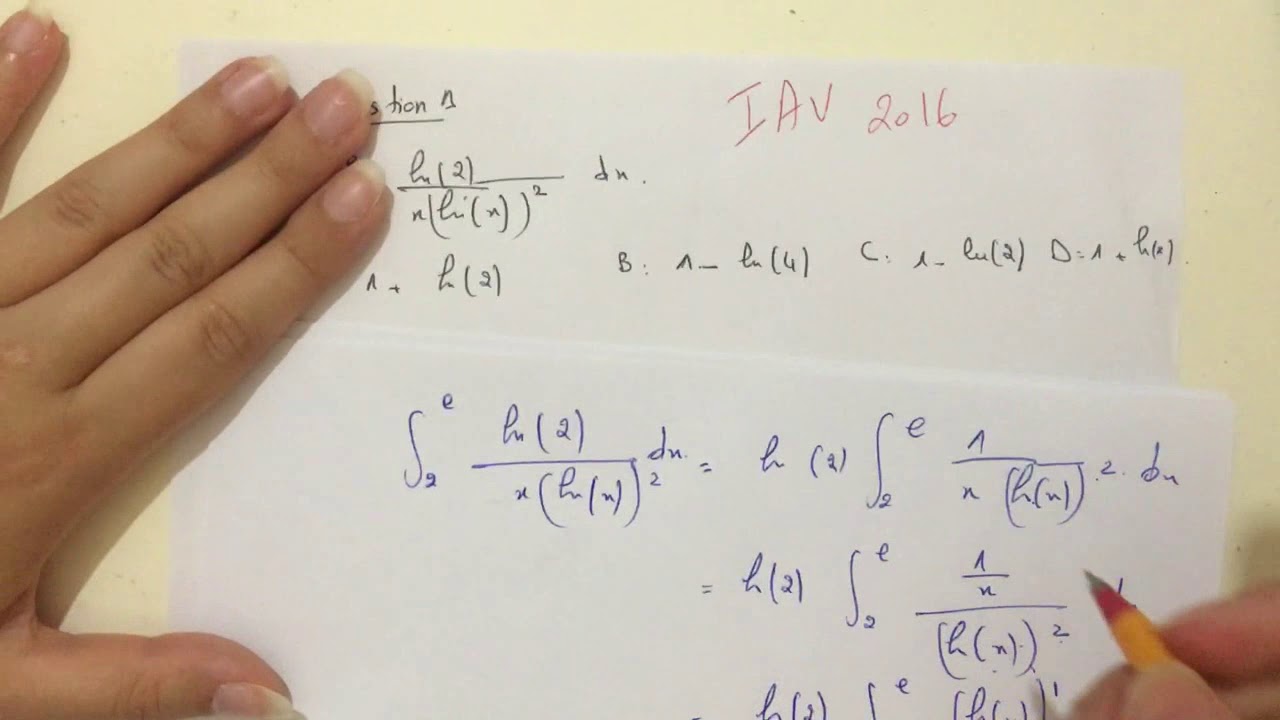 stion 1
IAV 2016
ln(2)/x(ln(x))² dx.
1 + ln(2) B: 1 - ln(4) C: 1 - ln(2) D: 1 + ln(x).
∫₂ᵉ ln(2)/x(ln(x))² dx = ln(2) ∫₂ᵉ 1/x(ln(x))² dx
= ln(2) ∫₂ᵉ (1/x)/(ln(x))²
= ln(2) ∫ᵉ (ln(x))'